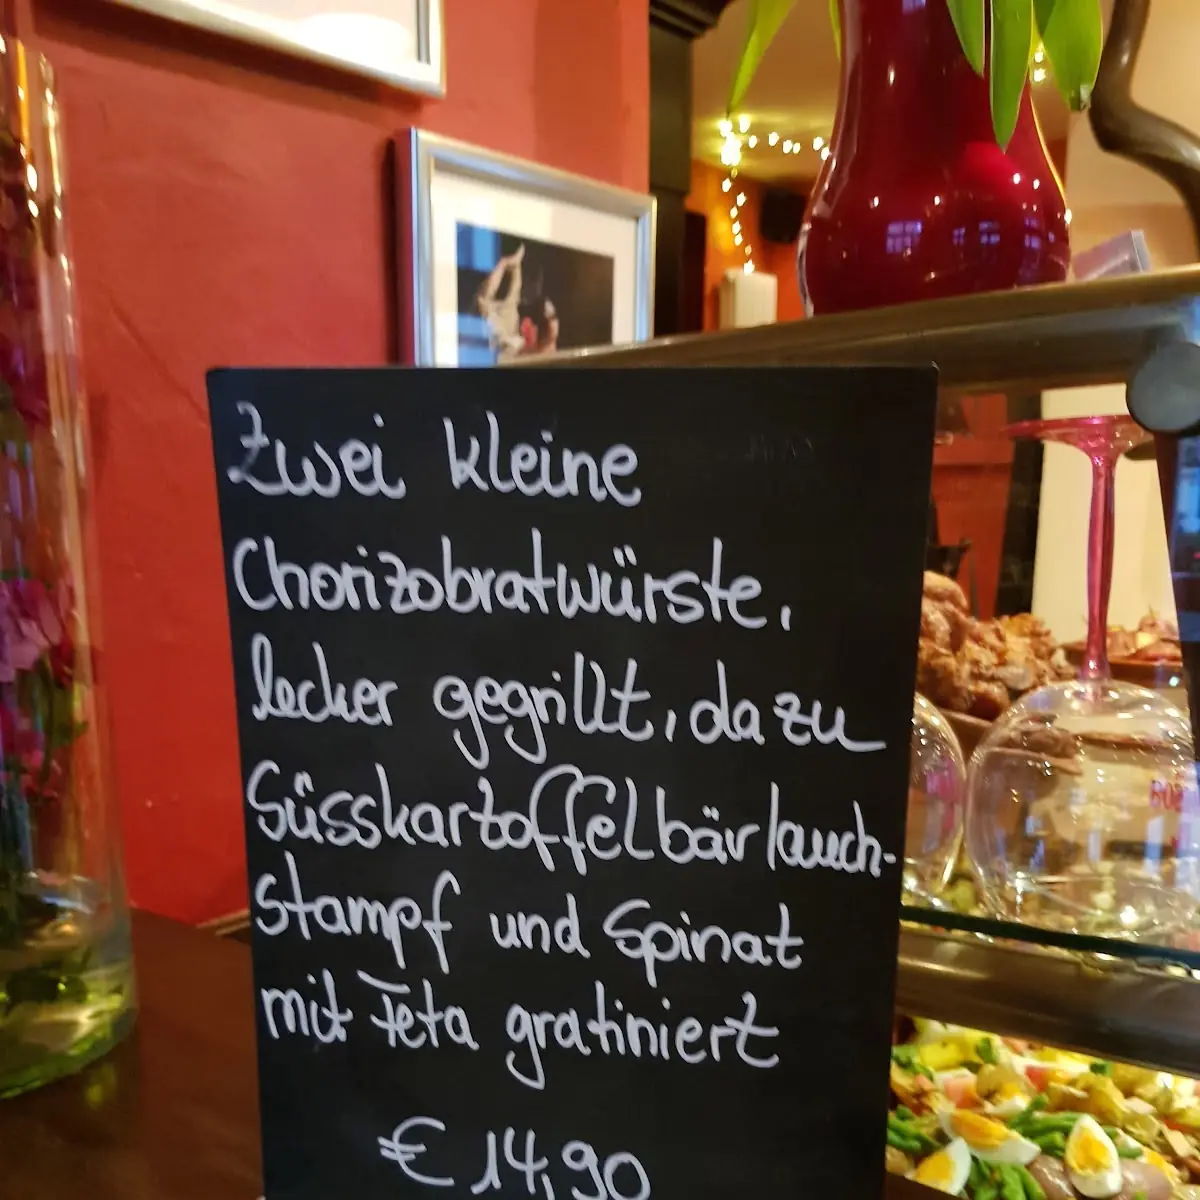 Zwei kleine
Chorizobratwürste,
lecker gegrillt, dazu
Süsskartoffelbärlauch-
Stampf und Spinat
mit Feta gratiniert
€ 14,90